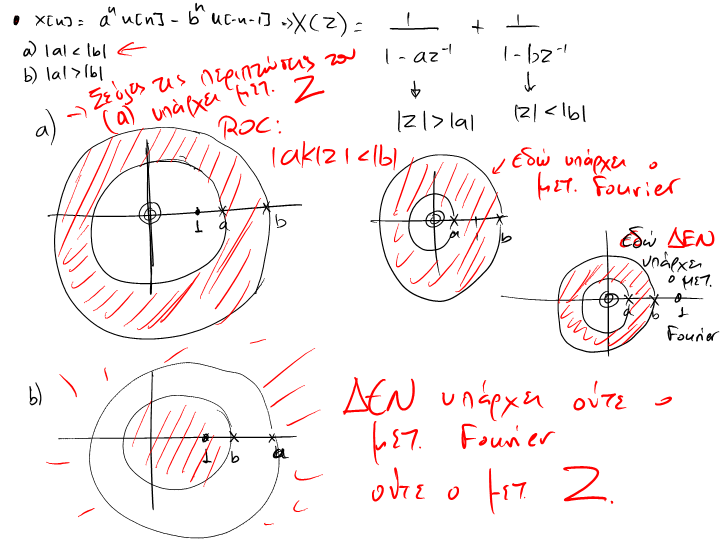 • x[n] = aⁿ u[n] - bⁿ u[-n-1] → X(z) = 1 / (1 - az⁻¹) + 1 / (1 - bz⁻¹)
a) |a| < |b| ←
b) |a| > |b|
↓ |z| > |a|
↓ |z| < |b|
→ Σε όλες τις περιπτώσεις του
(a) υπάρχει μετ. Z
a)
ROC:
|a| < |z| < |b|
1 a b
εδώ υπάρχει ο
μετ. Fourier
a b
εδώ ΔΕΝ
υπάρχει
ο μετ.
Fourier
a b 1
b)
1 b a
ΔΕΝ υπάρχει ούτε ο
μετ. Fourier
ούτε ο μετ. Z.